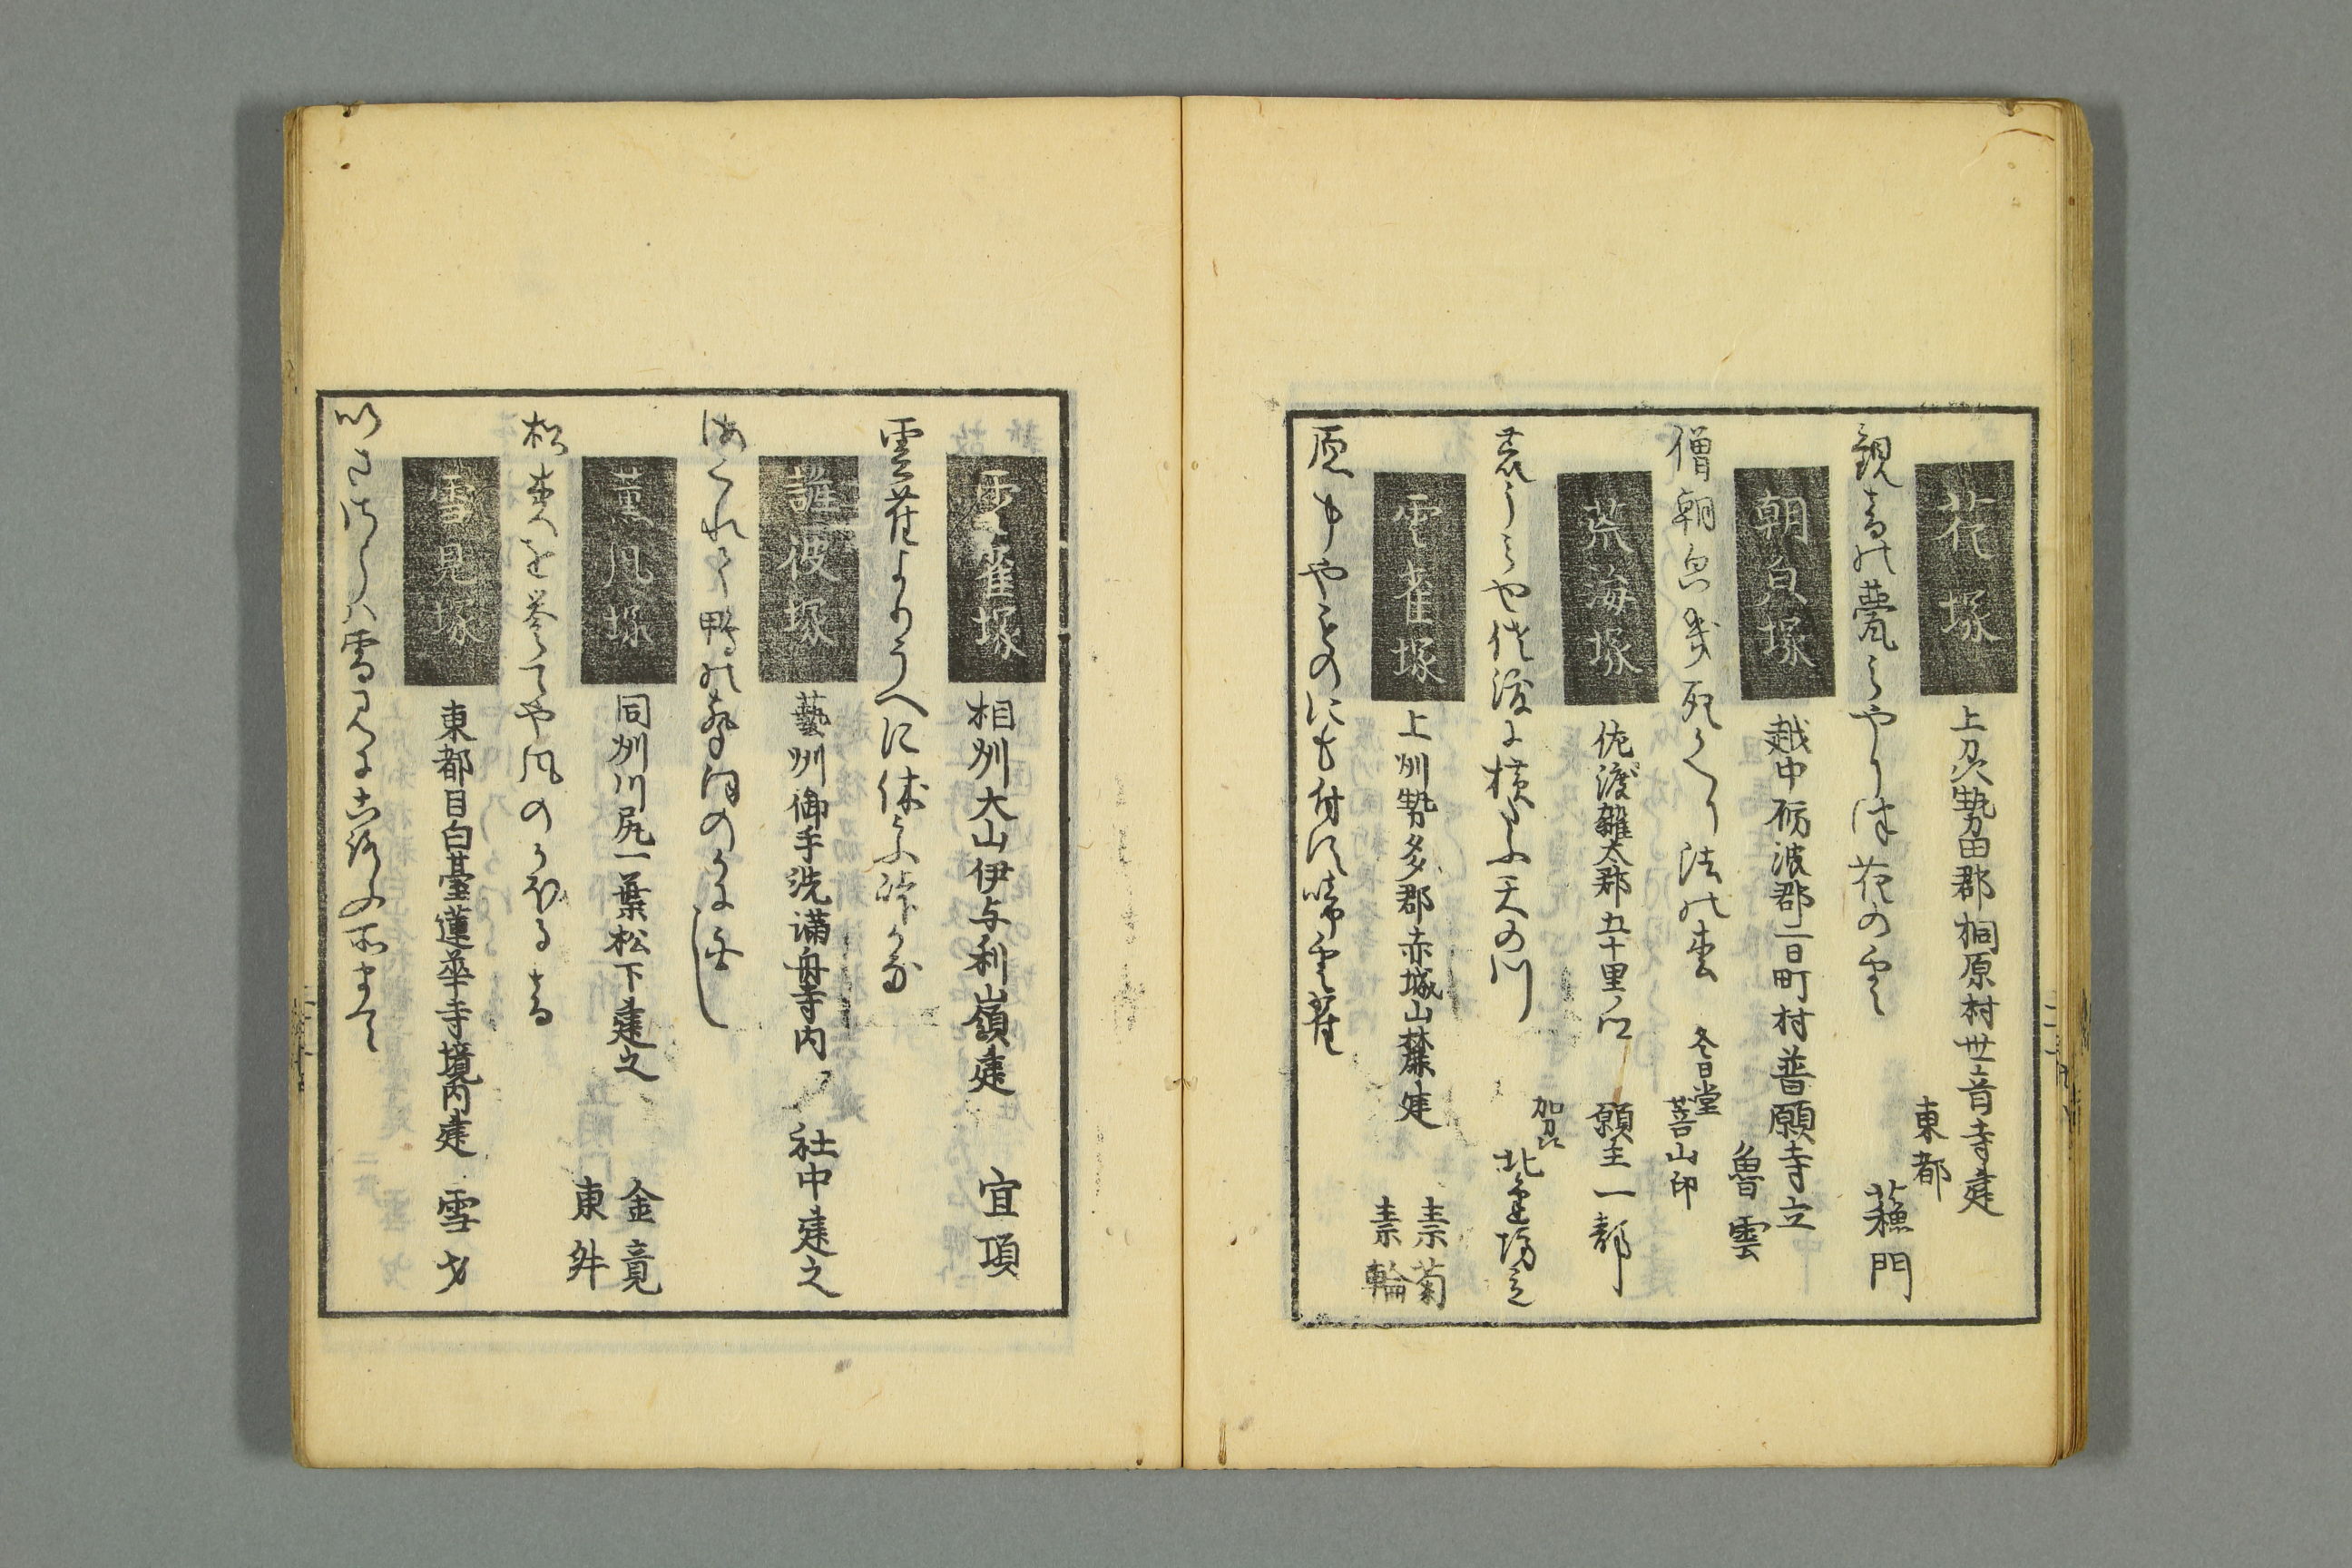 花塚
上刕勢田郡桐原村世音寺建
東都
蘓門
観音の甍みやりつ花の雲
朝皃塚
越中砺波郡二日町村普願寺立
魯雲
僧朝皃幾死かへり法の枩
冬日堂
菩山印
荒海塚
佐渡雑太郡五十里
願主一都
荒うみや佐渡に横たふ天の川
加刕
北
雲雀塚
上州勢多郡赤城山麓建
素菊
素輪
原中やものにも付す啼雲雀
雲雀塚
相州大山伊与利山嶺建
宜項
雲雀よりうへに休ふ峠かな
誰彼塚
藝州御手洗満舟寺内
社中建之
海くれて鴨の聲ほのかに白し
薫風塚
同州川尻一葉松下建之
金竟
東舛
松杉をほめてや風のかほる音
雪見塚
東都目白臺蓮華寺境内建
雪才
いささらは雪見にころふ所まて